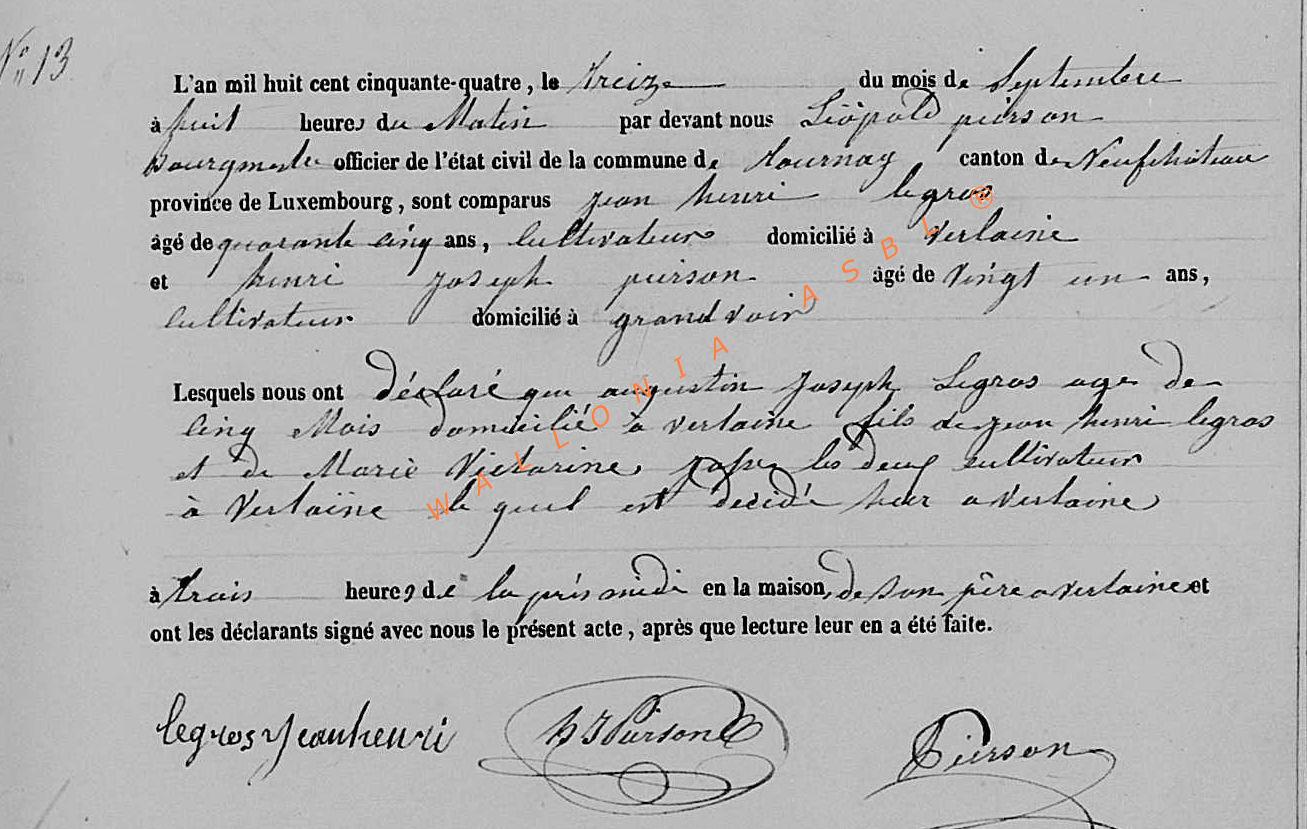 N° 13
L'an mil huit cent cinquante-quatre, le treize du mois de Septembre
à huit heures du Matin par devant nous Léopold pierson
bourgmestre officier de l'état civil de la commune de tournay canton de Neufchateau
province de Luxembourg, sont comparus jean henri legros
âgé de quarante cinq ans, cultivateur domicilié à verlaine
et henri joseph pierson âgé de vingt un ans,
cultivateur domicilié à grandvoir
Lesquels nous ont déclaré que augustin joseph Legros age de
cinq Mois domicilié à verlaine fils de jean henri legros
et de Marie Victorine les deux cultivateur
à Verlaine le quel est décidé hier a verlaine
à trois heures de la près midi en la maison, de son père a verlaine et
ont les déclarants signé avec nous le présent acte, après que lecture leur en a été faite.
legros jeanhenri hJPierson Pierson
WALLONIA ASBL ®